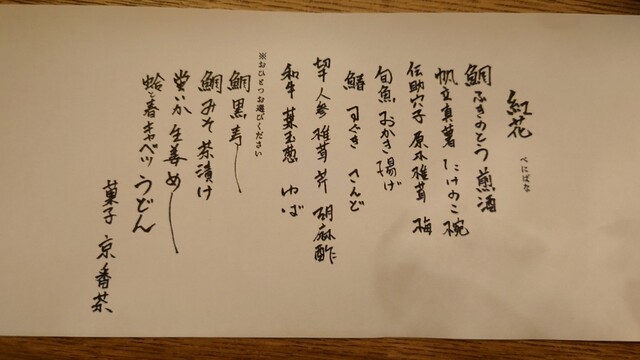 紅花 べにばな
鯛 ふきのとう 煎酒
帆立真薯 たけのこ 椀
伝助穴子 原木椎茸 梅
旬魚 おかき揚げ
鰆 うすい さんど
切干 人参 椎茸 芹 胡麻酢
和牛 葉玉葱 ゆば
※おひとつお選びください
鯛 黒寿し
鯛 みそ 茶漬け
蛍いか 生姜 めし
蛤と春キャベツ うどん
菓子 京番茶